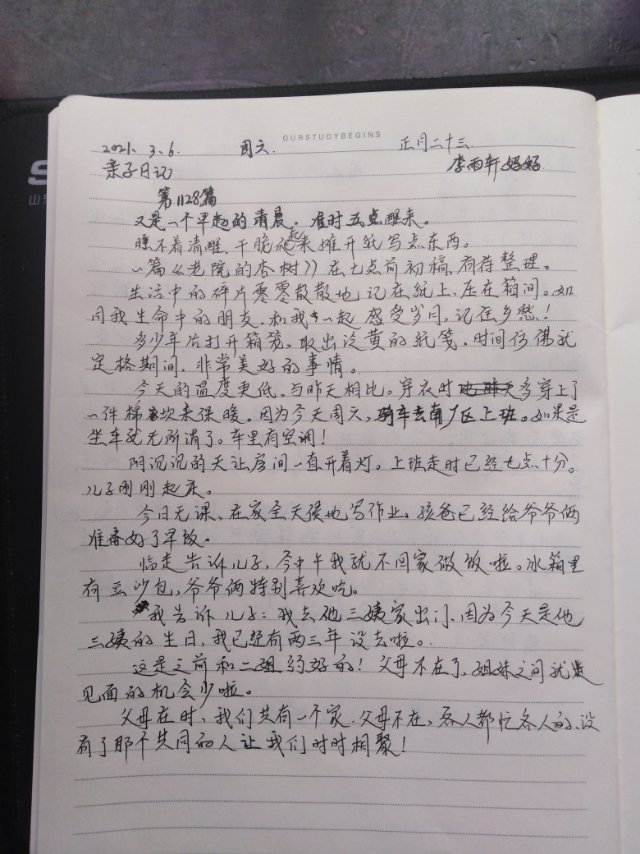 OURSTUDYBEGINS
2021. 3. 6. 周六. 正月二十三
亲子日记 李雨轩妈妈
第1128篇
又是一个早起的清晨。准时五点醒来。
睡不着清醒、干脆起来摊开纸写点东西。
一篇《老院的杏树》在七点前初稿,有待整理。
生活中的碎片零零散散地记在纸上、压在箱间。如
同我生命中的朋友,和我一起感受岁月,记住乡愁!
多少年后打开箱笼,取出泛黄的纸笺,时间仿佛就
定格期间,非常美好的事情。
今天的温度更低,与昨天相比。穿衣时多穿上了
一件棉来保暖。因为今天周六,骑车去南厂区上班。如果是
坐车就无所谓了。车里有空调!
阴沉沉的天让房间一直开着灯。上班走时已经七点十分。
儿子刚刚起床。
今日无课、在家全天候地写作业。孩爸已经给爷爷俩
准备好了早饭。
临走告诉儿子,今中午我就不回家做饭啦。冰箱里
有豆沙包,爷爷俩特别喜欢吃。
我告诉儿子:我去他三姨家出门,因为今天是他
三姨的生日,我已经有两三年没去啦。
这是之前和二姐约好的!父母不在了,姐妹之间就
见面的机会少啦。
父母在时、我们共有一个家,父母不在,各人都忙各人的、没
有了那个共同的人让我们时时相聚!